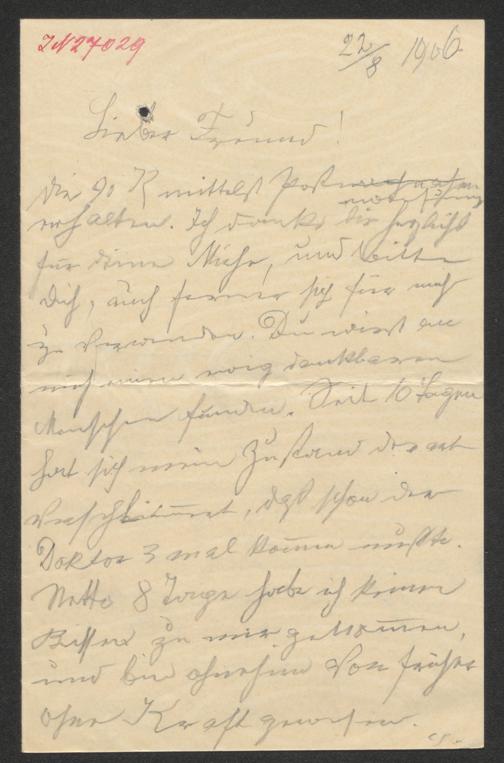 IN 27029
22/8 1906
Lieber Freund!
Die 90 K mittelst Post
erhalten. Ich danke Dir herzlichst
für Deine Mühe, und bitte
Dich, auch ferner sich für mich
zu verwenden. Du wirst an
mich einen ewig dankbaren
Menschen finden. Seit 10 Tagen
hat sich mein Zustand derart
verschlimmert, daß schon der
Doktor 3 mal kommen mußte.
Netto 8 Tage habe ich keinen
Bissen zu mir genommen,
und bin ohnehin von früher
ohne Kraft gewesen.